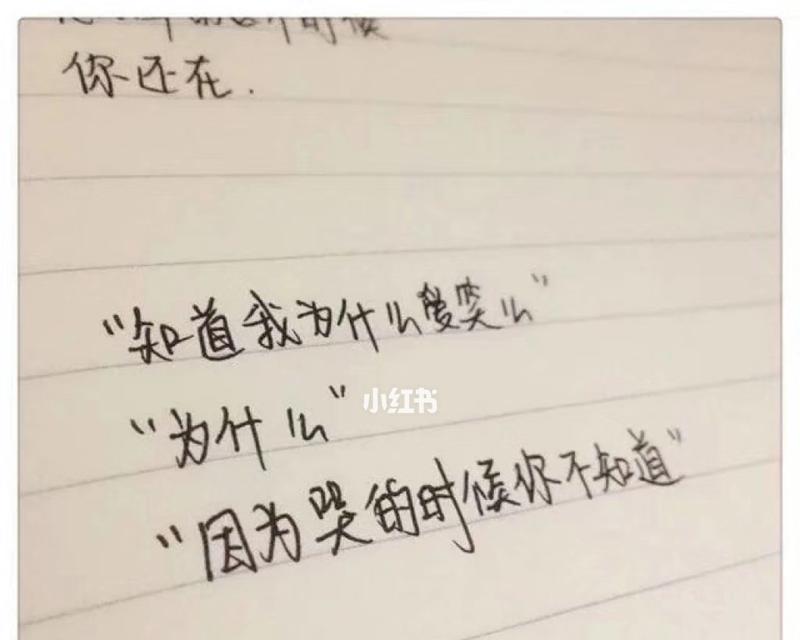 的时候
你还在.
“知道我为什么爱笑么”
“为什么”
小红书
“因为哭的时候你不知道”